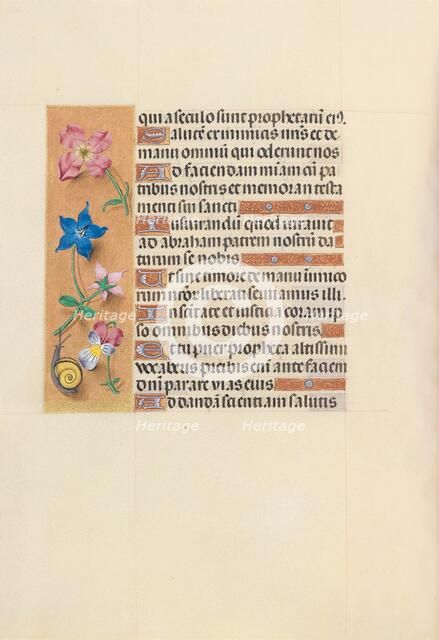 qui a seculo sunt prophetarū eiꝰ.
Salutē ex inimicis nr̄is et de
manu omniū qui oderunt nos
Ad faciendam mīam cū pa
tribus nostris et memorari testa
menti sui sancti
Iusiurandū quod iurauit
ad abraham patrem nostrū da
turum se nobis
Vt sine timore de manu inimico
rum nr̄or̄ liberati seruiamus illi.
In sc̄itate et iusticia coram ip
so omnibus diebus nostris
Et tu puer propheta altissimi
vocaberis preibis enī ante faciem
dn̄i parare vias eius
Ad dandā scientiam salutis
Heritage
Heritage
Heritage
Heritage